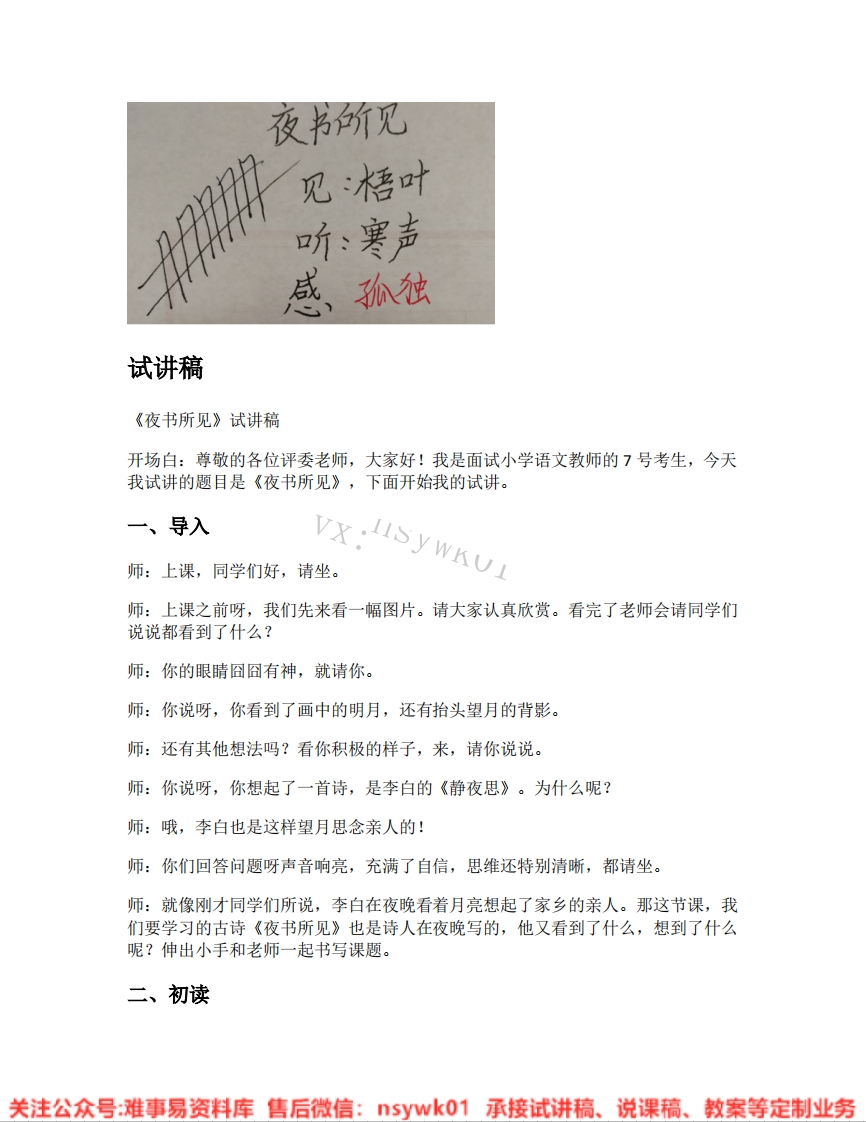 夜书所见
见：梧叶
听：寒声
感 孤独
试讲稿
《夜书所见》试讲稿
开场白：尊敬的各位评委老师，大家好！我是面试小学语文教师的 7 号考生，今天
我试讲的题目是《夜书所见》，下面开始我的试讲。
一、导入
VX:nsywk01
师：上课，同学们好，请坐。
师：上课之前呀，我们先来看一幅图片。请大家认真欣赏。看完了老师会请同学们
说说都看到了什么？
师：你的眼睛囧囧有神，就请你。
师：你说呀，你看到了画中的明月，还有抬头望月的背影。
师：还有其他想法吗？看你积极的样子，来，请你说说。
师：你说呀，你想起了一首诗，是李白的《静夜思》。为什么呢？
师：哦，李白也是这样望月思念亲人的！
师：你们回答问题呀声音响亮，充满了自信，思维还特别清晰，都请坐。
师：就像刚才同学们所说，李白在夜晚看着月亮想起了家乡的亲人。那这节课，我
们要学习的古诗《夜书所见》也是诗人在夜晚写的，他又看到了什么，想到了什么
呢？伸出小手和老师一起书写课题。
二、初读
关注公众号:难事易资料库 售后微信：nsywk01 承接试讲稿、说课稿、教案等定制业务